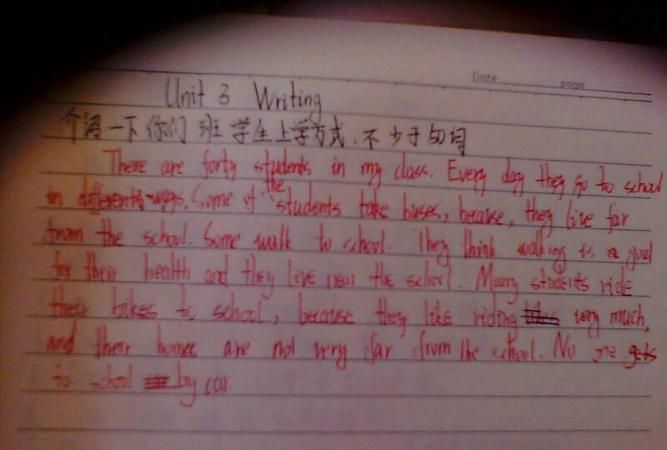 Date page
Unit 3 Writing
介绍一下你们班学生上学方式.不少于50词
There are forty students in my class. Every day they go to school
in differents ways. Some of the students take buses, because, they live far
from the school. Some walk to school. They think walking is a good
for their health and they live near the school. Many students ride
their bikes to school, because they like riding very much,
and their homes are not very far from the school. No one gets
to school by car